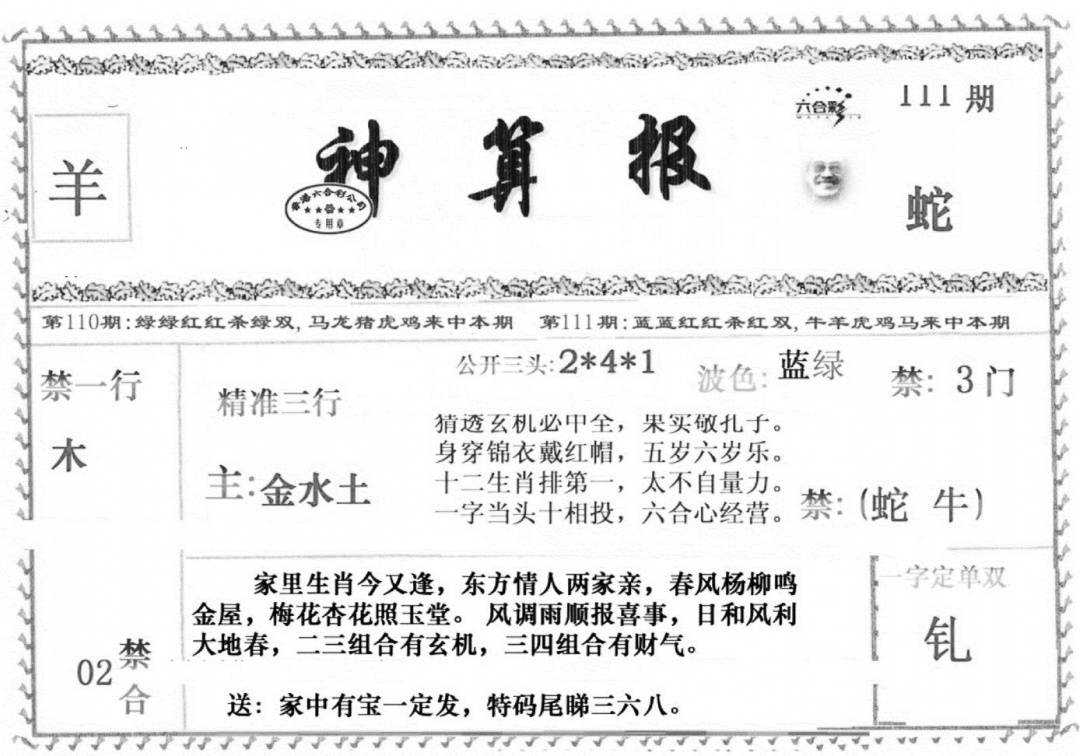 六合彩
111 期
羊
神算报
香港六合彩公司
专用章
蛇
第110期:绿绿红红杀绿双,马龙猪虎鸡来中本期 第111期:蓝蓝红红杀红双,牛羊虎鸡马来中本期
禁一行
木
精准三行
主:金水土
公开三头:2*4*1
波色:蓝绿
禁: 3 门
猜透玄机必中全，果买敬孔子。
身穿锦衣戴红帽，五岁六岁乐。
十二生肖排第一，太不自量力。
一字当头十相投，六合心经营。
禁:(蛇 牛)
02
禁合
家里生肖今又逢，东方情人两家亲，春风杨柳鸣
金屋，梅花杏花照玉堂。风调雨顺报喜事，日和风利
大地春，二三组合有玄机，三四组合有财气。
送：家中有宝一定发，特码尾睇三六八。
一字定单双
钆